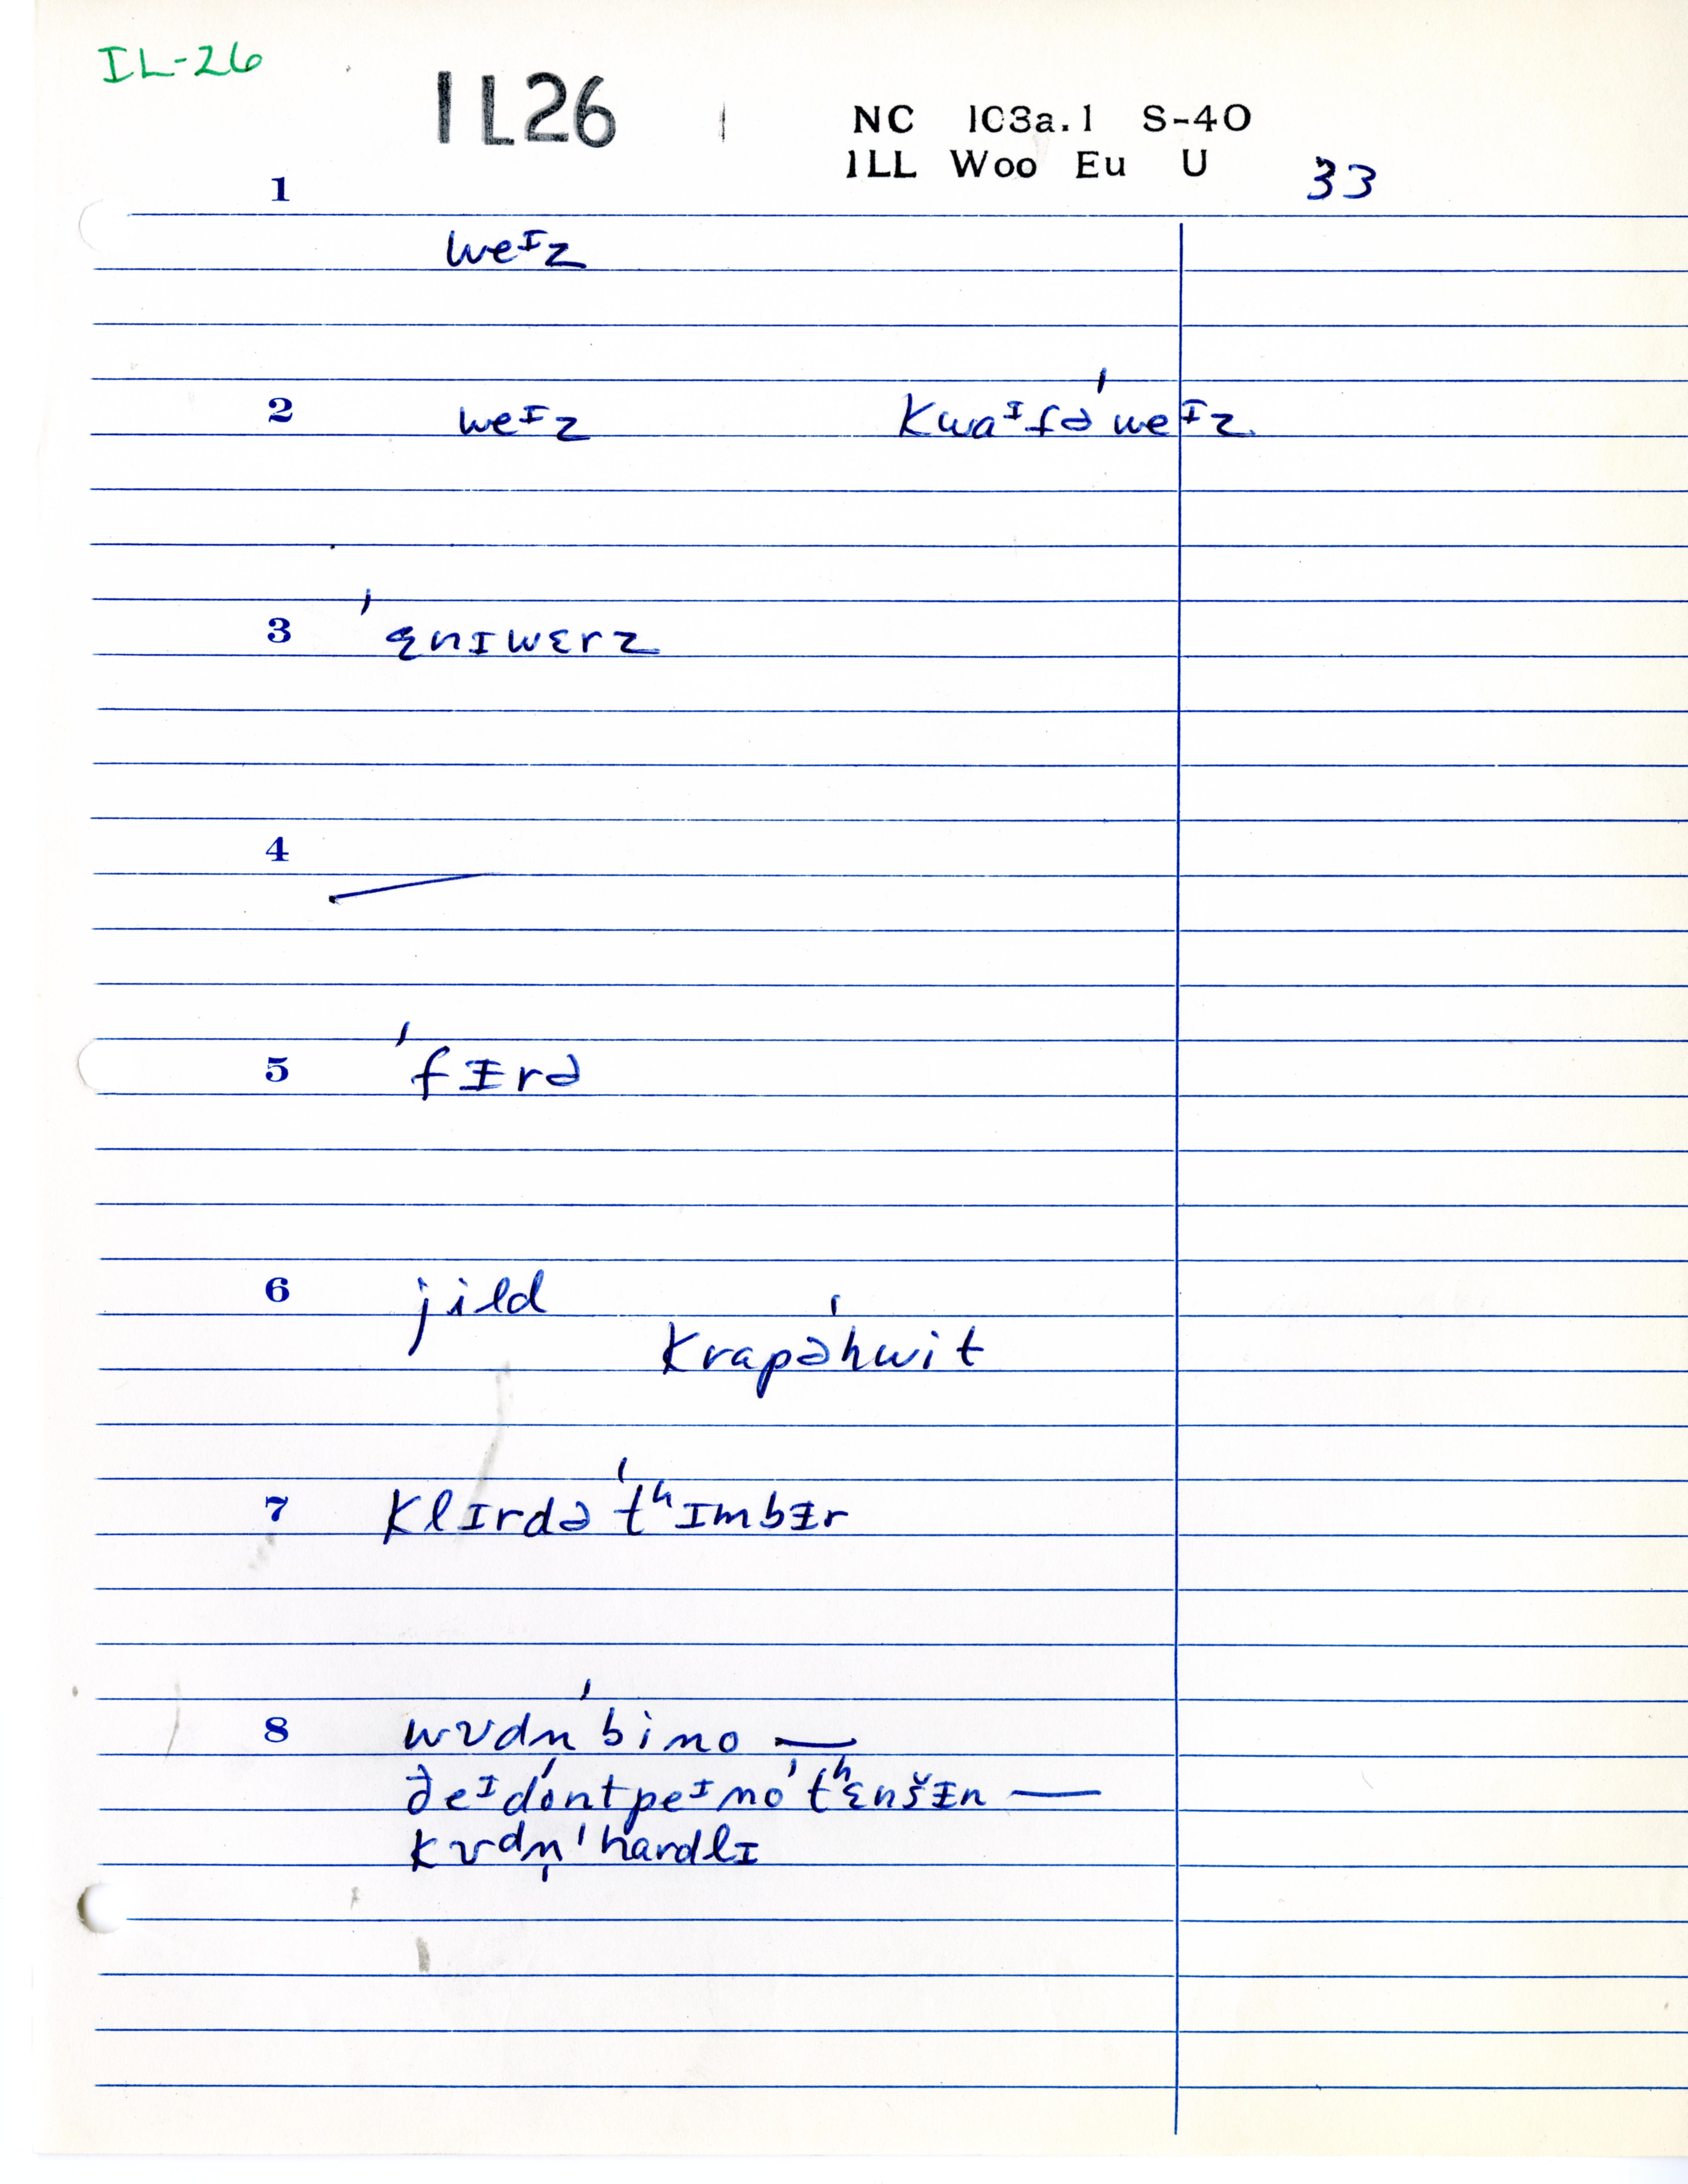 IL-26
IL26 1 NC 103a.1 S-40
ILL Woo Eu U 33
1 weᶦz
2 weᶦz kwaᶦfə'weᶦz
3 'ɛnɪwɛrz
4 —
5 'fɪ̵rə
6 jild
krapə'hwit
7 klɪrdə'tʰɪmbɪ̵r
8 wʊdn'bino —
ðeᶦdóntpeᶦno'tʰɛnšɪ̵n —
kʊdn̩'hardlɪ